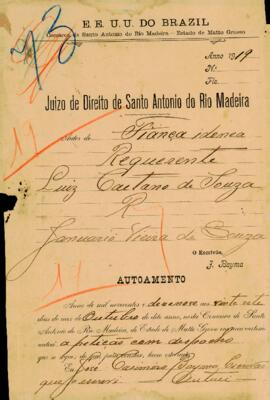 73
E. E. U. U. DO BRAZIL
Comarca de Santo Antonio do Rio Madeira - Estado de Matto Grosso
Anno 1919
N.
Fls.
Juizo de Direito de Santo Antonio do Rio Madeira
Autos de Fiança idonea
Requerente
Luiz Caetano de Souza
R
Januario Vieira de Souza
O Escrivão,
J. Bayma
AUTOAMENTO
Anno de mil novecentos e dezenove aos vinte sete
dias do mez de Outubro do dito anno, nesta Comarca de Santo
Antonio do Rio Madeira, do Estado de Matto Grosso
a petição com despacho
que
Eu José Casimiro Bayma, Escrivão
que